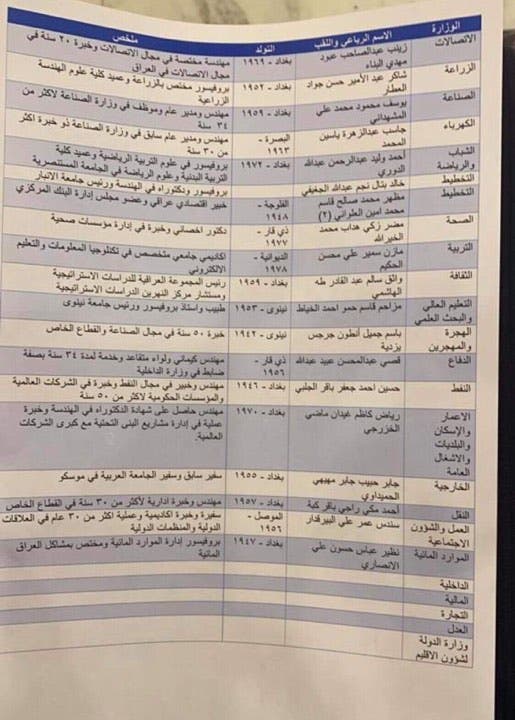 الوزارة الاسم الرباعي واللقب التولد ملخص
الاتصالات زينب عبدالصاحب عبود بغداد - ١٩٦٩ مهندسة مختصة في مجال الاتصالات وخبرة ٢٠ سنة في
مهدي البناء مجال الاتصالات في العراق
الزراعة شاكر عبد الأمير حسن جواد بغداد - ١٩٥٢ بروفيسور مختص بالزراعة وعميد كلية علوم الهندسة
العطار الزراعية
الصناعة يوسف محمود محمد علي بغداد - ١٩٥٩ مهندس ومدير عام وموظف في وزارة الصناعة لأكثر من
المشهداني ٣٤ سنة
الكهرباء جاسب عبدالزهرة ياسين البصرة - مهندس ومدير عام سابق في وزارة الصناعة ذو خبرة اكثر
المحمد ١٩٦٣ من ٣٠ سنة
الشباب أحمد وليد عبدالرحمن عبدالله بغداد - ١٩٧٢ بروفيسور في علوم التربية الرياضية وعميد كلية
والرياضة الدوري التربية البدنية وعلوم الرياضة في الجامعة المستنصرية
التخطيط خالد بتال نجم عبدالله الجغيفي بروفيسور ودكتوراه في الهندسة ورئيس جامعة الانبار
التخطيط مظهر محمد صالح قاسم الفلوجة - خبير اقتصادي عراقي وعضو مجلس إدارة البنك المركزي
محمد امين العلواني (٢) ١٩٤٨
الصحة مضر زكي هداب محمد ذي قار - دكتور اخصائي وخبرة في إدارة مؤسسات صحية
الخيرالله ١٩٧٧
التربية مازن سمير علي محسن الديوانية - اكاديمي جامعي متخصص في تكنلوجيا المعلومات والتعليم
الحكيم ١٩٧٨ الالكتروني
الثقافة واثق سالم عبد القادر طه بغداد - ١٩٥٩ رئيس المجموعة العراقية للدراسات الاستراتيجية
الهاشمي ومستشار مركز النهرين الدراسات الاستراتيجية
التعليم العالي مزاحم قاسم حمو احمد الخياط نينوى - ١٩٥٣ طبيب واستاذ بروفيسور ورئيس جامعة نينوى
والبحث العلمي
الهجرة باسم جميل أنطون جرجس نينوى - ١٩٤٢ خبرة ٥٠ سنة في مجال الصناعة والقطاع الخاص
والمهجرين يزدية
الدفاع قصي عبدالمحسن عبيد عبدالله ذي قار - مهندس كيميائي ولواء متقاعد وخدمة لمدة ٣٤ سنة بصفة
١٩٥٦ ضابط في وزارة الداخلية
النفط حسين احمد جعفر باقر الجلبي بغداد - ١٩٤٦ مهندس وخبير في مجال النفط وخبرة في الشركات العالمية
والمؤسسات الحكومية لاكثر من ٥٠ سنة
الاعمار رياض كاظم غيدان ماضي بغداد - ١٩٧٠ مهندس حاصل على شهادة الدكتوراه في الهندسة وخبرة
والإسكان الخزرجي عملية في إدارة مشاريع البنى التحتية مع كبرى الشركات
والبلديات العالمية.
والاشغال
العامة
الخارجية جابر حبيب جابر مهيهي بغداد - ١٩٥٥ سفير سابق وسفير الجامعة العربية في موسكو
الحميداوي
النقل أحمد مكي راجي باقر كبة بغداد - ١٩٥٧ مهندس وخبرة ادارية لأكثر من ٣٠ سنة في القطاع الخاص
العمل والشؤون سندس عمر علي البيرقدار الموصل - سفيرة وخبرة اكاديمية وعملية اكثر من ٣٠ عام في العلاقات
الاجتماعية ١٩٥٦ الدولية والمنظمات الدولية
الموارد المائية نظير عباس حسون علي بغداد - ١٩٤٧ بروفيسور إدارة الموارد المائية ومختص بمشاكل العراق
الانصاري المائية
الداخلية
المالية
التجارة
العدل
وزارة الدولة
لشؤون الاقليم